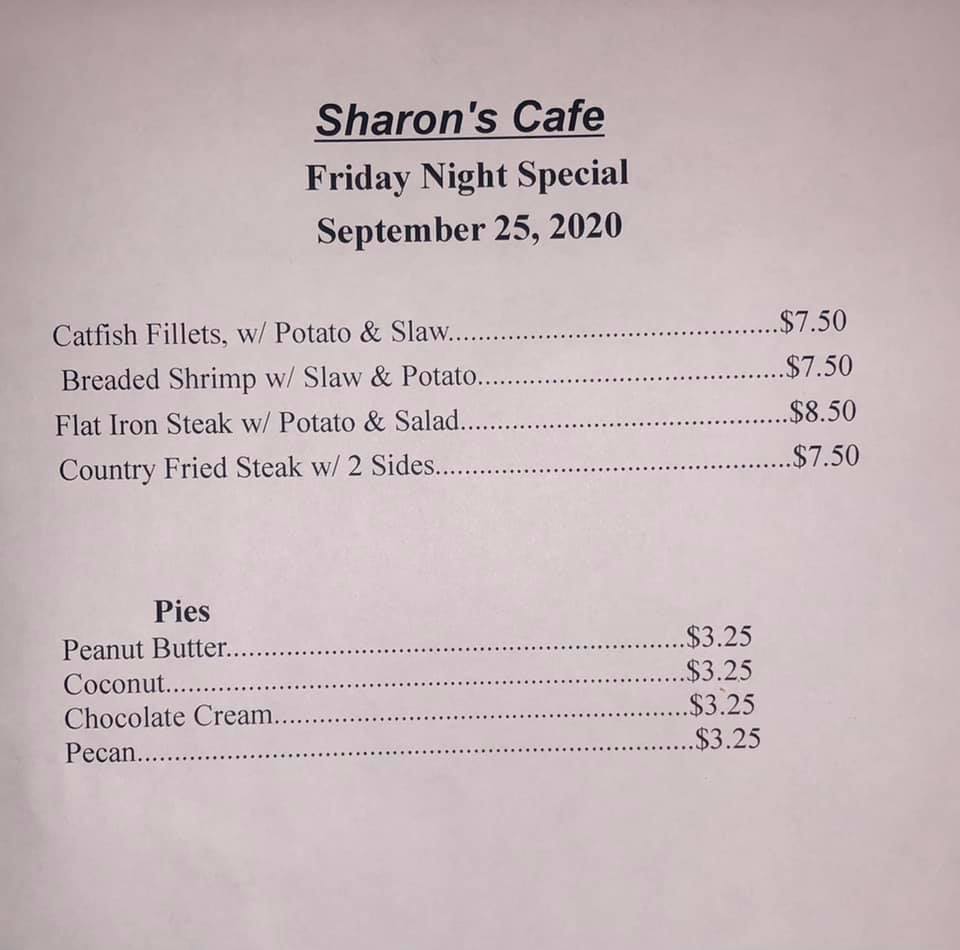 Sharon's Cafe
Friday Night Special
September 25, 2020
Catfish Fillets, w/ Potato & Slaw............................................$7.50
Breaded Shrimp w/ Slaw & Potato.........................................$7.50
Flat Iron Steak w/ Potato & Salad............................................$8.50
Country Fried Steak w/ 2 Sides...............................................$7.50
Pies
Peanut Butter.............................................................$3.25
Coconut.....................................................................$3.25
Chocolate Cream.......................................................$3.25
Pecan..........................................................................$3.25